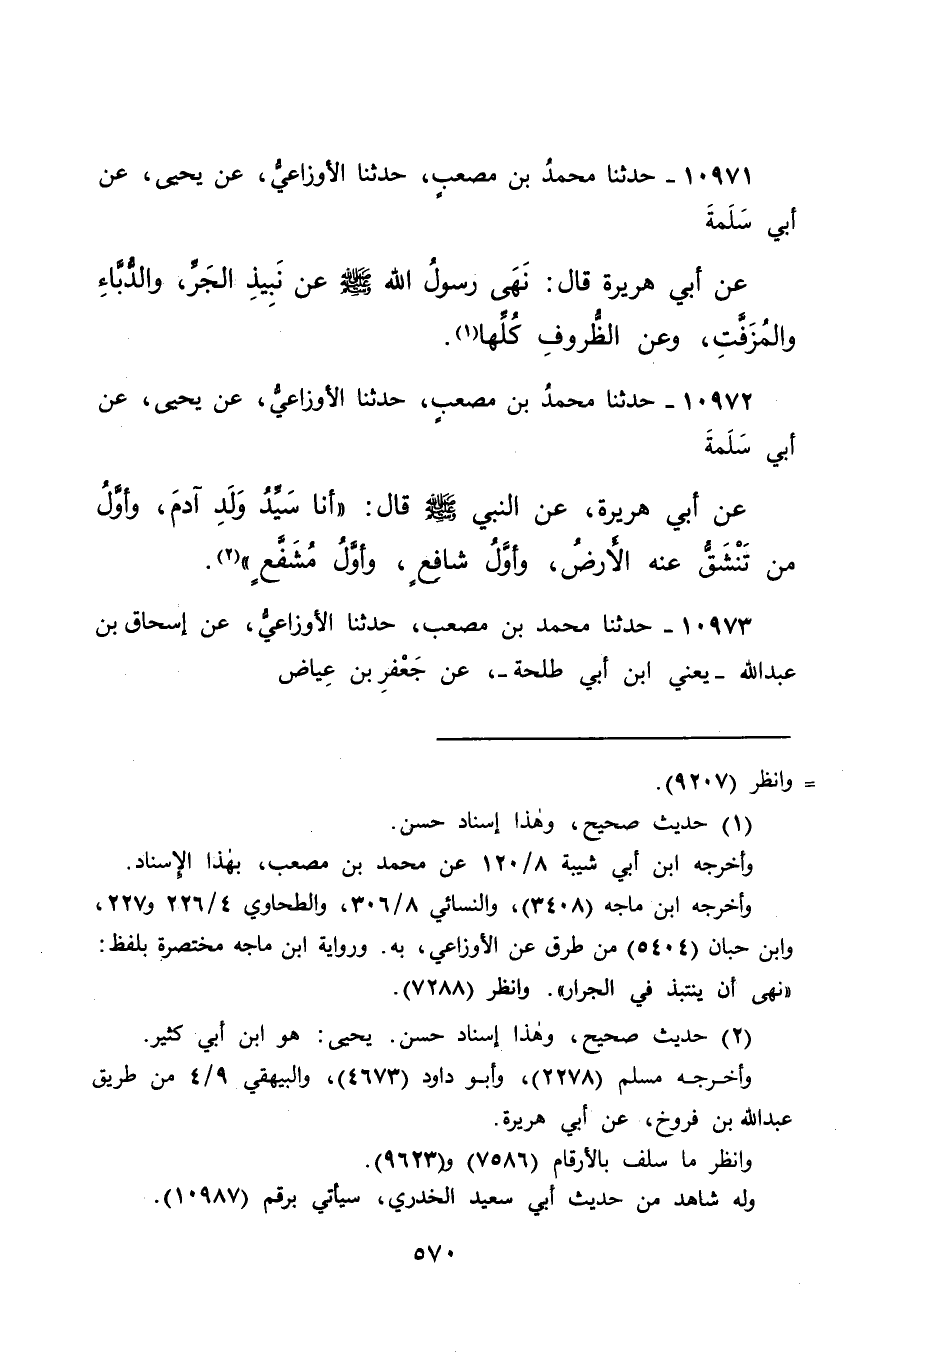 ١٠٩٧١ - حدثنا محمدُ بن مصعبٍ، حدثنا الأوزاعيُّ، عن يحيى، عن
أبي سَلَمةَ
عن أبي هريرة قال: نَهَى رسولُ الله ﷺ عن نَبيذِ الجَرِّ، والدُّبَّاءِ
والمُزَفَّتِ، وعن الظُّروفِ كُلِّها(١).
١٠٩٧٢ - حدثنا محمدُ بن مصعبٍ، حدثنا الأوزاعيُّ، عن يحيى، عن
أبي سَلَمةَ
عن أبي هريرة، عن النبي ﷺ قال: «أنا سَيِّدُ وَلَدِ آدمَ، وأوَّلُ
من تَنْشَقُّ عنه الأَرضُ، وأوَّلُ شافِعٍ، وأوَّلُ مُشَفَّعٍ»(٢).
١٠٩٧٣ - حدثنا محمد بن مصعب، حدثنا الأوزاعيُّ، عن إسحاق بن
عبدالله - يعني ابن أبي طلحة -، عن جَعْفرِ بن عِياض
= وانظر (٩٢٠٧).
(١) حديث صحيح، وهٰذا إسناد حسن.
وأخرجه ابن أبي شيبة ١٢٠/٨ عن محمد بن مصعب، بهٰذا الإسناد.
وأخرجه ابن ماجه (٣٤٠٨)، والنسائي ٣٠٦/٨، والطحاوي ٢٢٦/٤ و٢٢٧،
وابن حبان (٥٤٠٤) من طرق عن الأوزاعي، به. ورواية ابن ماجه مختصرة بلفظ:
«نهى أن ينتبذ في الجرار». وانظر (٧٢٨٨).
(٢) حديث صحيح، وهٰذا إسناد حسن. يحيى: هو ابن أبي كثير.
وأخرجه مسلم (٢٢٧٨)، وأبو داود (٤٦٧٣)، والبيهقي ٤/٩ من طريق
عبدالله بن فروخ، عن أبي هريرة.
وانظر ما سلف بالأرقام (٧٥٨٦) و(٩٦٢٣).
وله شاهد من حديث أبي سعيد الخدري، سيأتي برقم (١٠٩٨٧).
٥٧٠